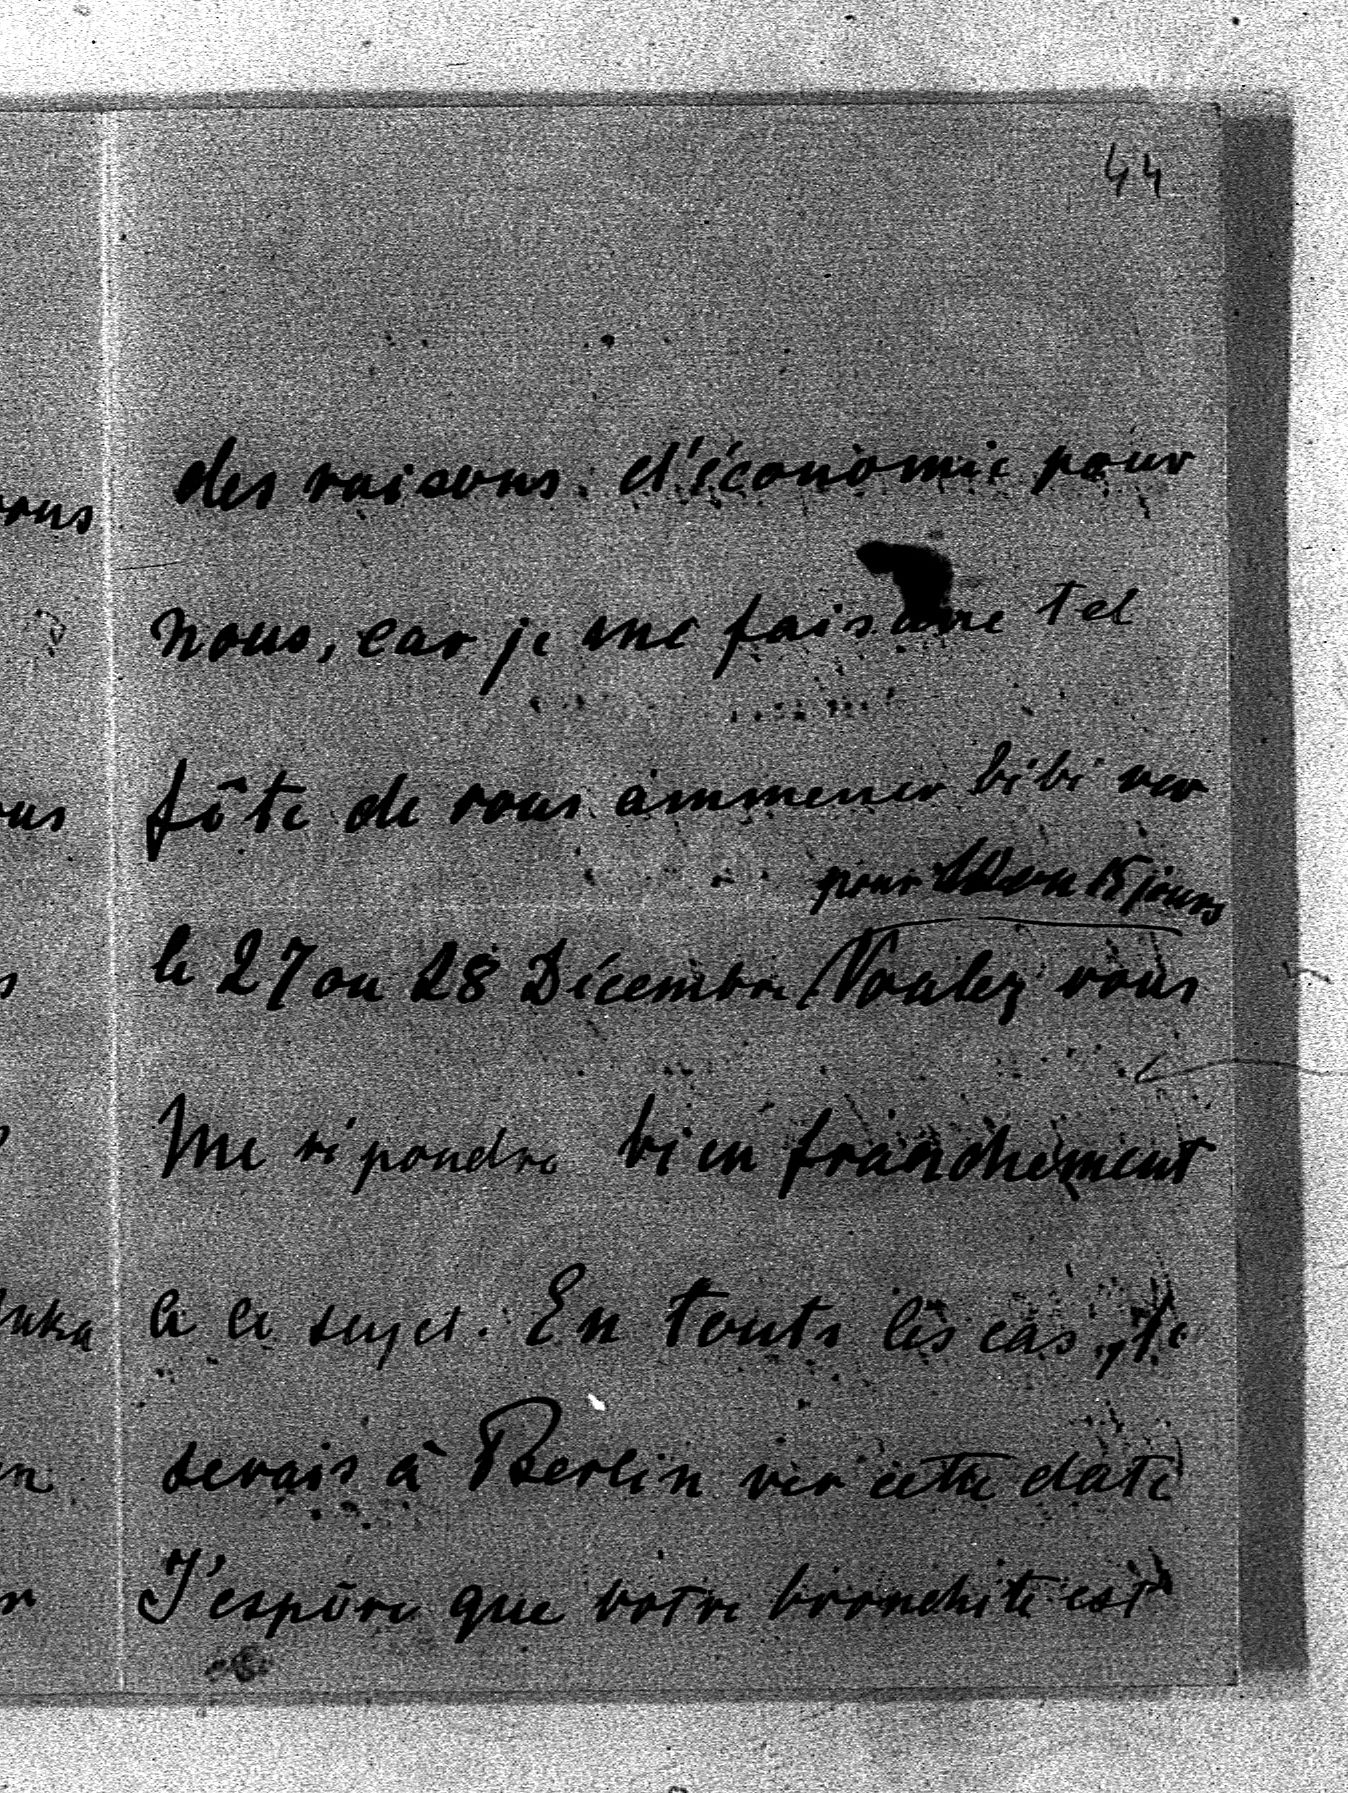 44
des raisons d'économie pour
nous, car je me fais une tel
fête de vous ammener bibi ver
pour 15 jours
le 27 ou 28 Décembre Voulez vous
me répondre bien franchement
a ce sujet. En touts les cas, je
serais à Berlin ver cette date
J'espère que votre bronchite est